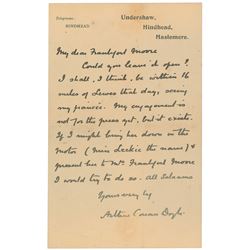 Telegrams:
HINDHEAD.
Undershaw,
Hindhead,
Haslemere.
My dear Frankfort Moore
Could you leave it open?
I shall, I think, be within 16
miles of Lewes that day, seeing
my fiancée. My engagement is
not for the press yet, but it exists.
If I might bring her down in the
motor (Miss Leckie the name) &
present her to Mrs Frankfort Moore
I would try to do so. All
Yours very truly
Arthur Conan Doyle